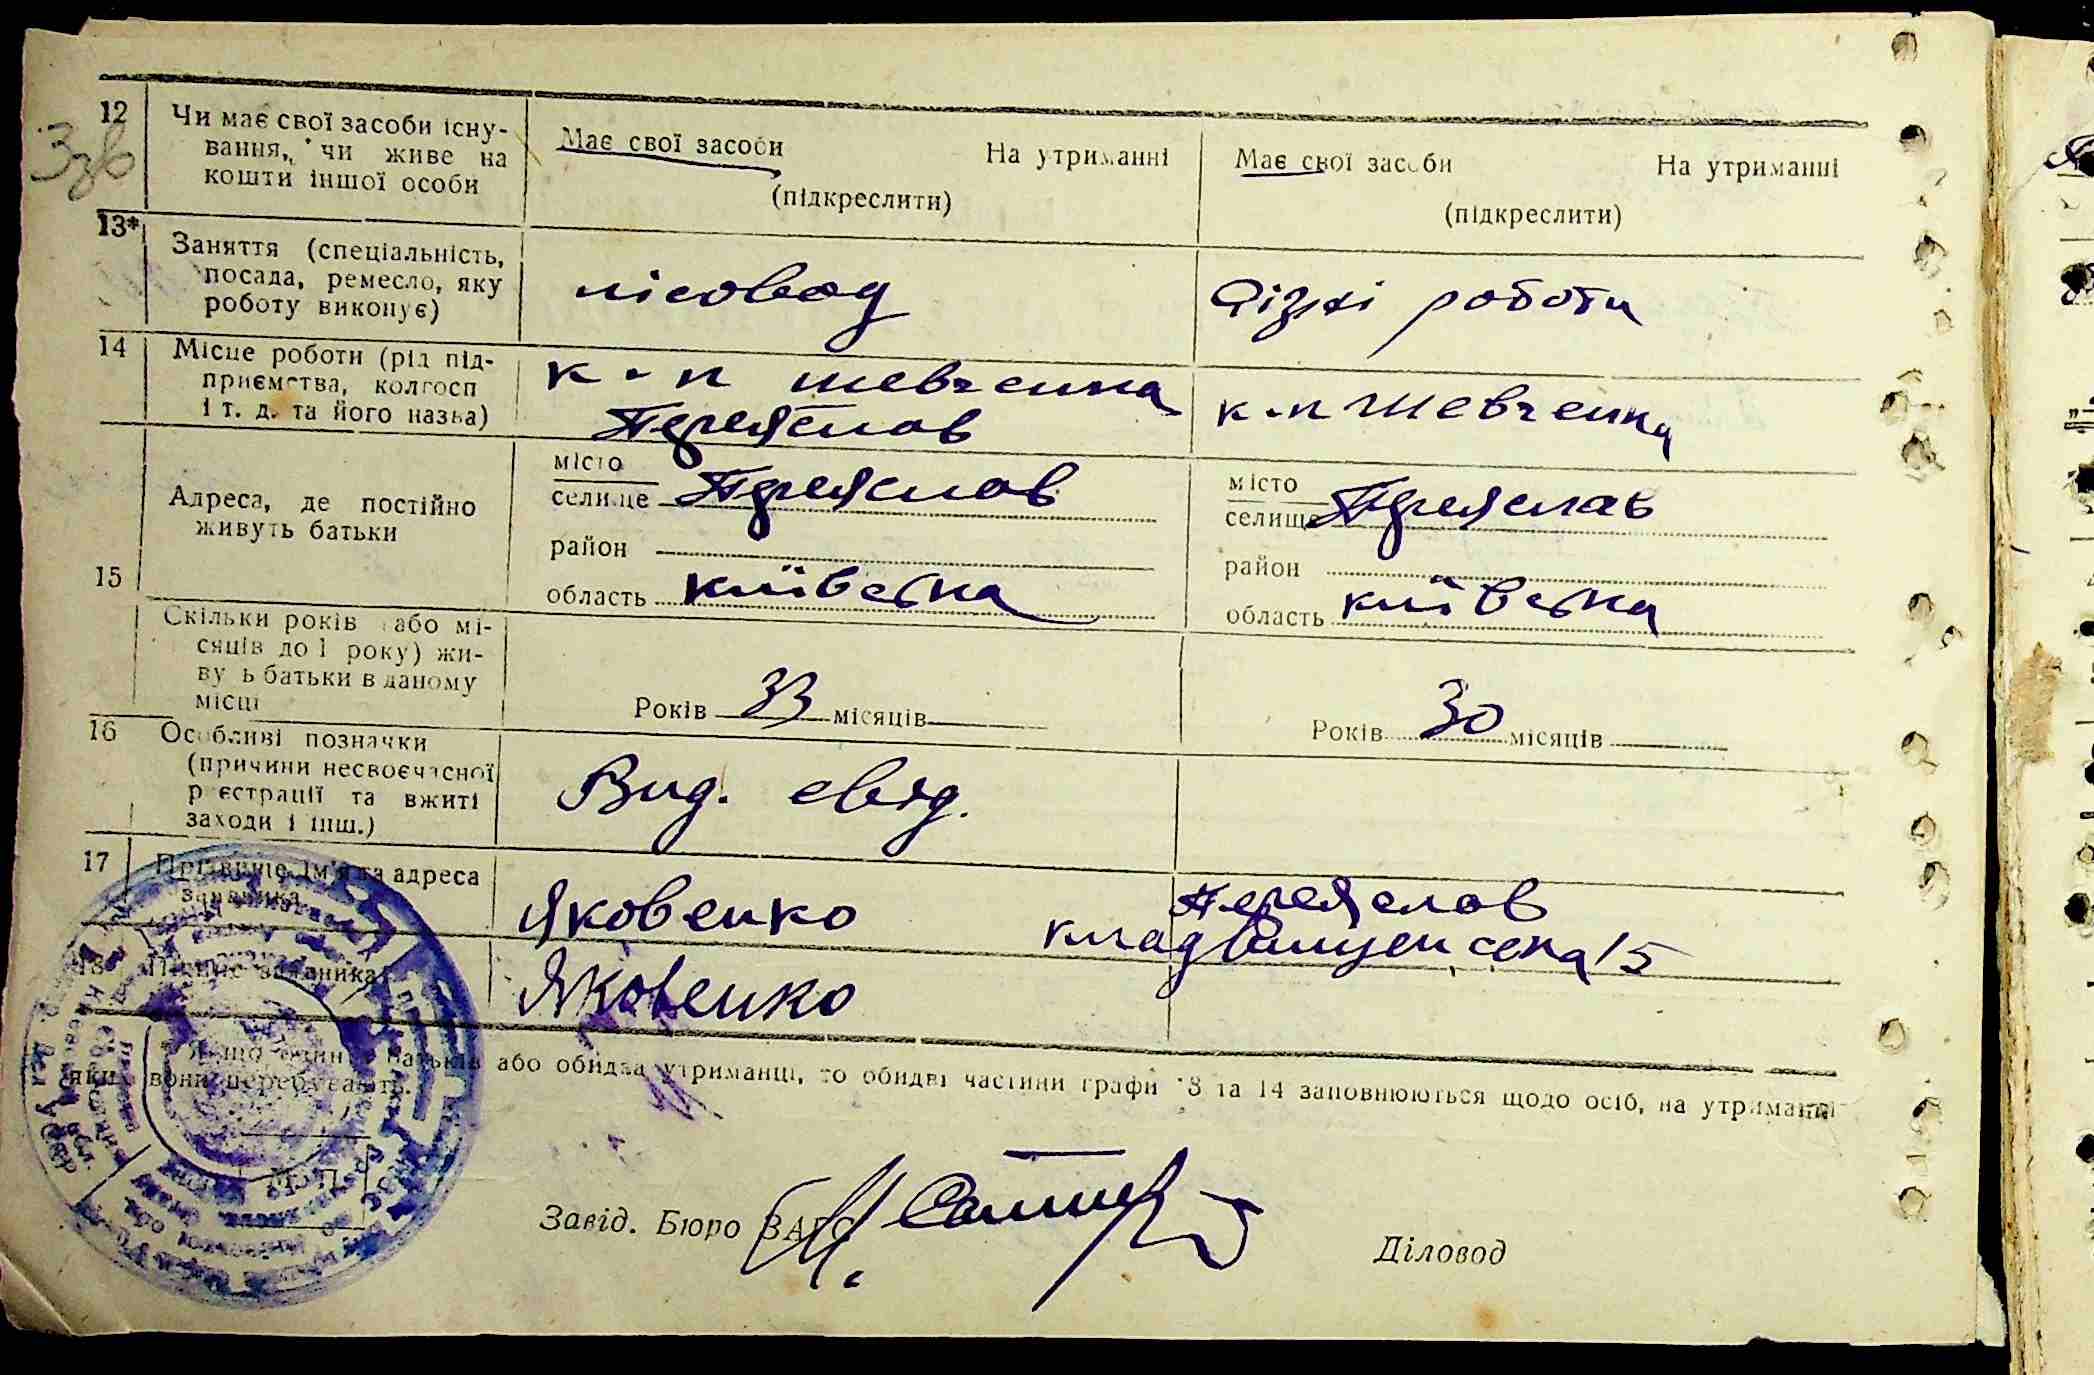 12
Чи має свої засоби існу-
вання, чи живе на
кошти іншої особи
Має свої засоби На утриманні
(підкреслити)
Має свої засоби На утриманні
(підкреслити)
13*
Заняття (спеціальність,
посада, ремесло, яку
роботу виконує)
лісовод
Фізкі роботи
14
Місце роботи (рід під-
приємства, колгосп
і т. д. та його назва)
к-п Шевченка
Переяслов
к-п Шевченка
Адреса, де постійно
живуть батьки
місто
селище Переяслов
район
область київська
місто
селище Переяслав
район
область київська
15
Скільки років або мі-
сяців до 1 року) жи-
вуть батьки в даному
місці
Років 33 місяців
Років 30 місяців
16
Особливі позначки
(причини несвоєчасної
реєстрації та вжиті
заходи і інш.)
Вид. свід.
17
Прізвище, ім'я та адреса
заявника
Яковенко
Переяслов
15
18
Підпис заявника
Яковенко
* Якщо один з батьків або обидва утриманці, то обидві частини графи 13 та 14 заповнюються щодо осіб, на утриманні
яких вони перебувають.
Завід. Бюро ЗАГС
Діловод